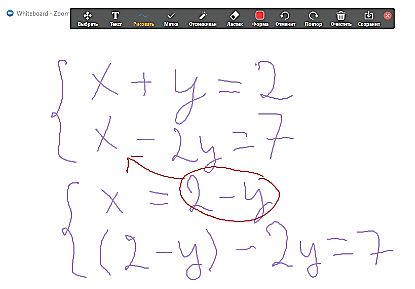 Whiteboard - Zoom
Выбрать Текст Рисовать Метка Отслеживая Ластик Форма Отменить Повтор Очистить Сохранит
x + y = 2
x - 2y = 7
x = 2 - y
(2 - y) - 2y = 7